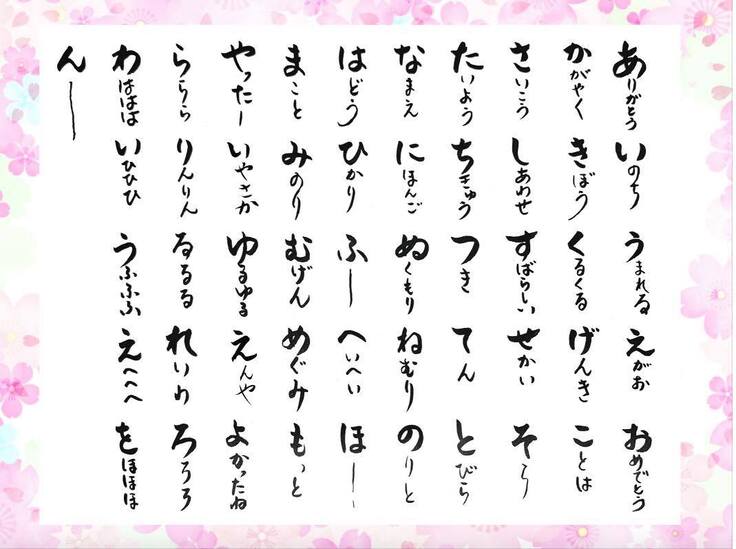 ありがとう いのち うまれる えがお おめでとう
かがやく きぼう くるくる げんき ことは
さいこう しあわせ すばらしい せかい
たいよう ちきゅう つき てん とびら
なまえ にほんご ぬくもり ねむり のりと
はどう ひかり ふー へいへい ほー
まこと みのり むげん めぐみ もっと
やったー いやさか ゆるゆる えんや よかったね
らららら りんりん るるるる れいわ ろろろろ
わははは いひひひ うふふふ えへへへ をほほほ
んー